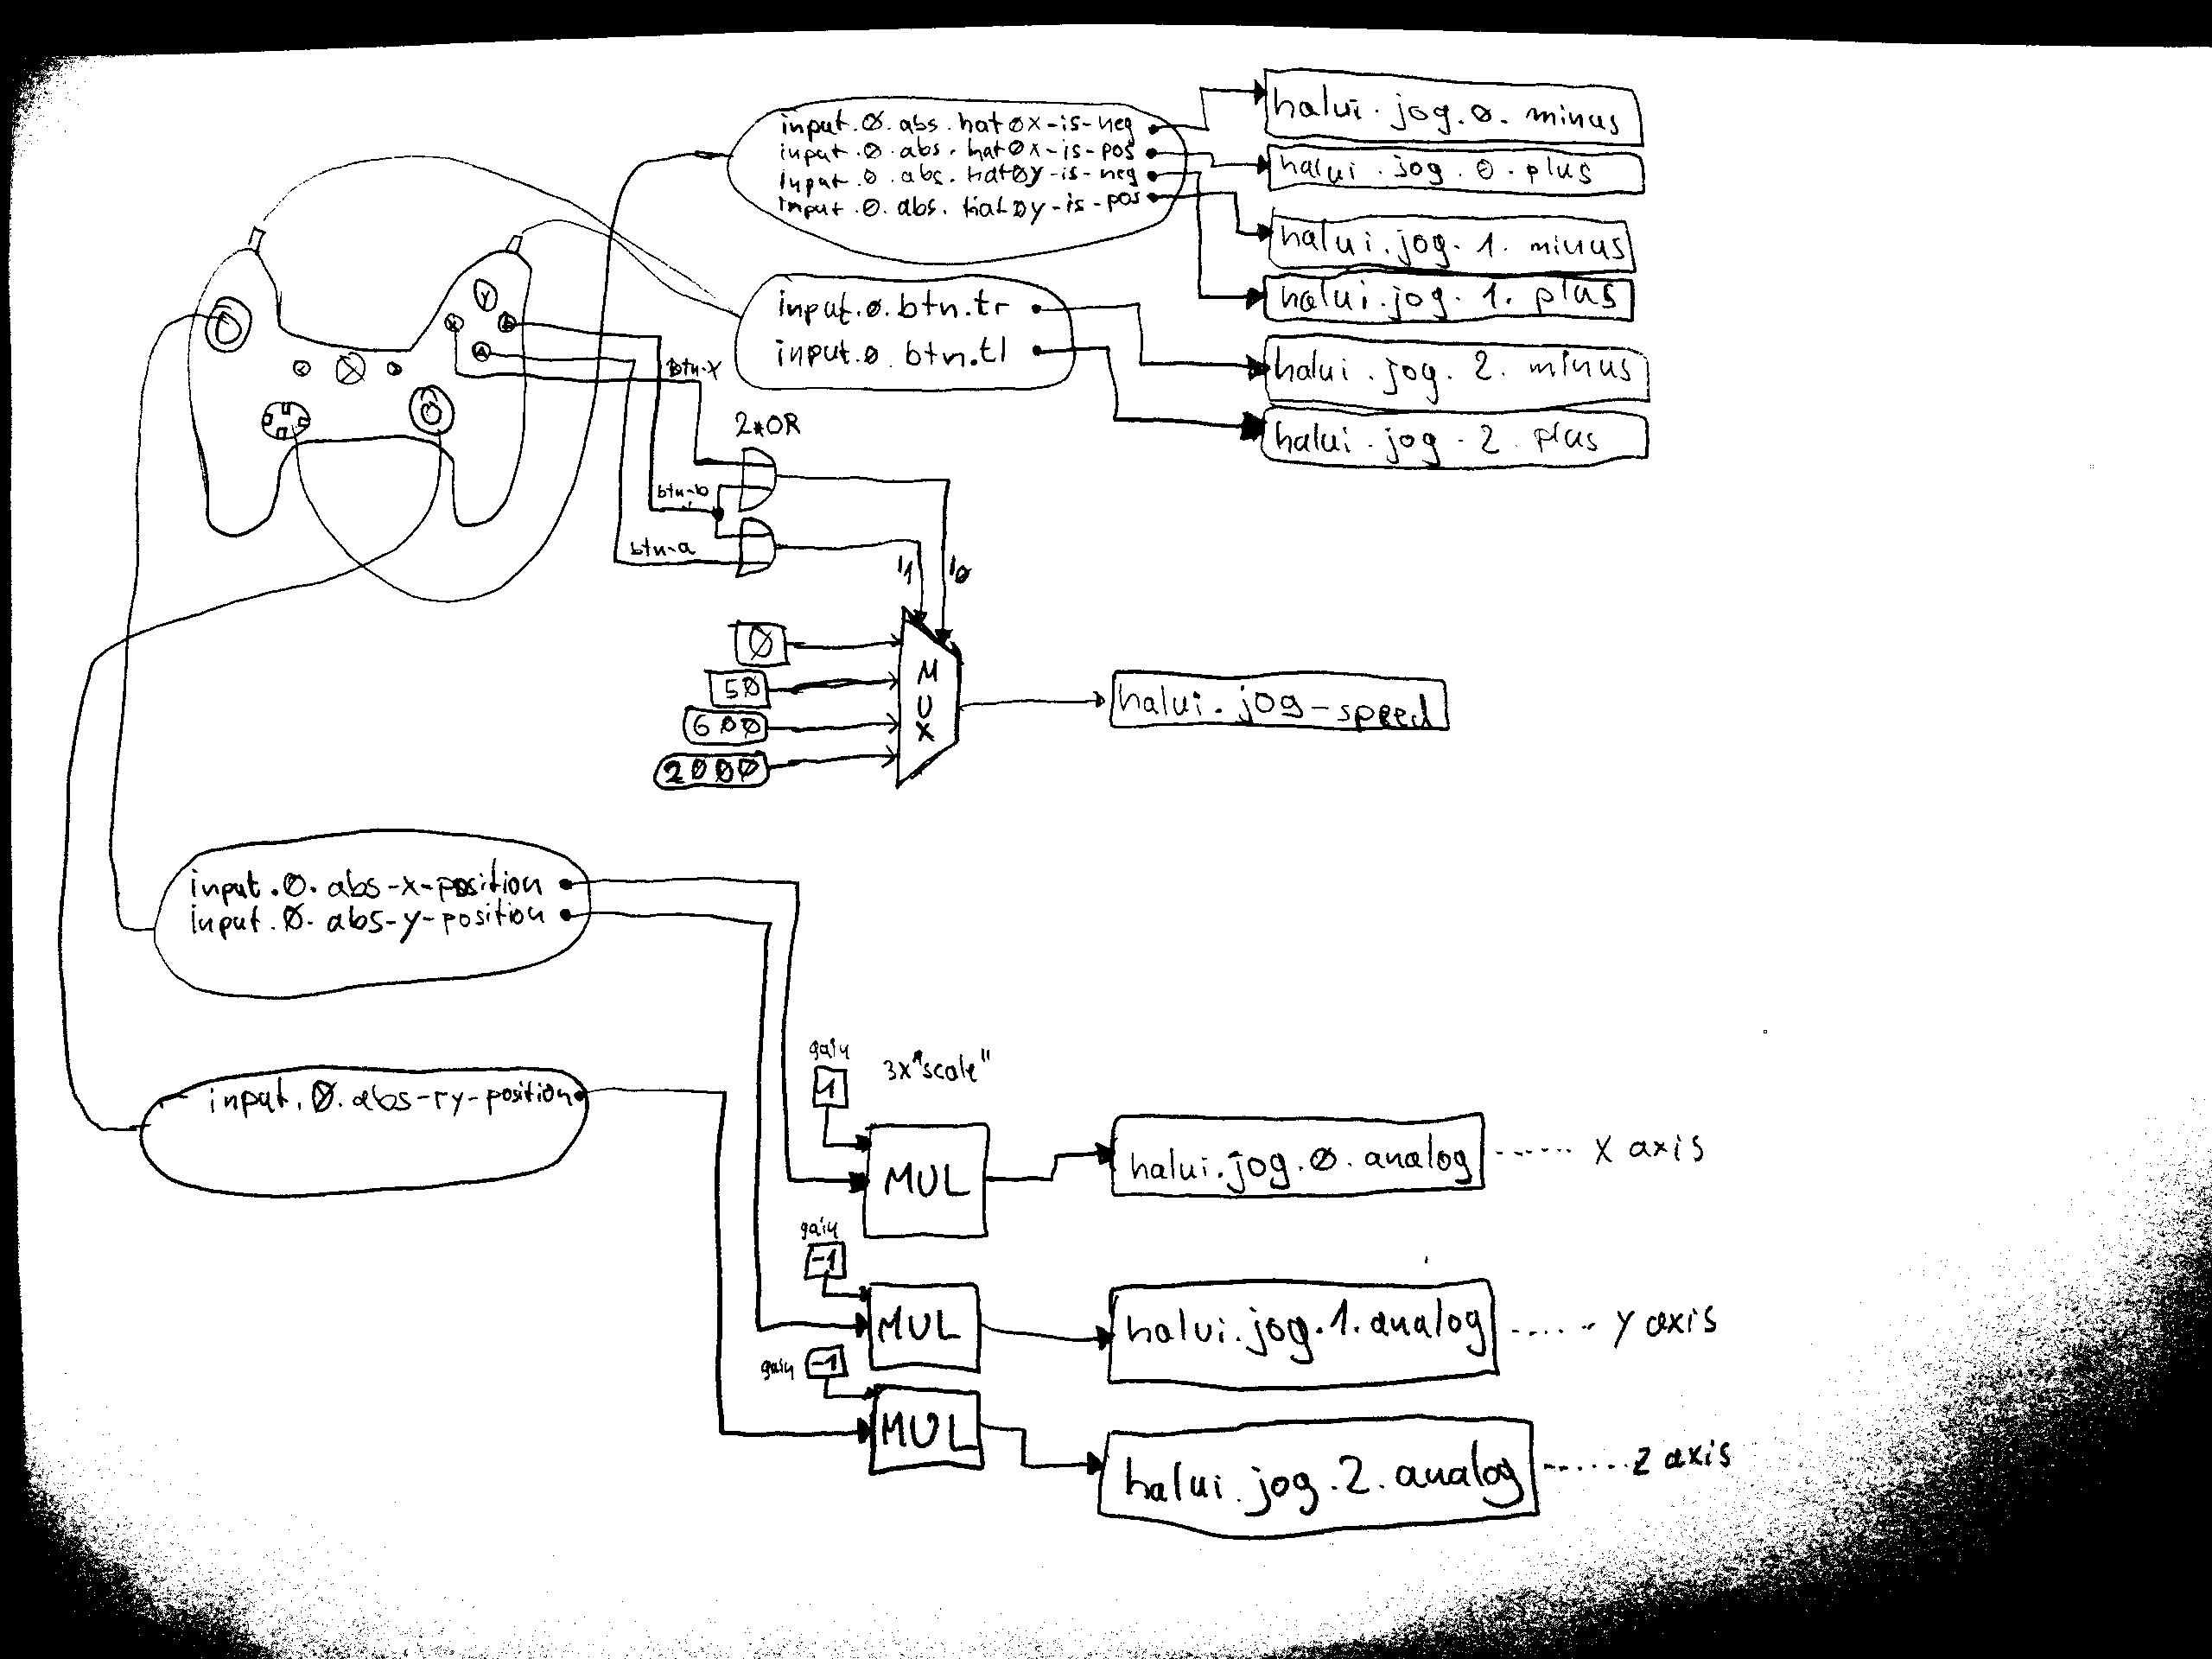 input.0.abs.hat0x-is-neg
input.0.abs.hat0x-is-pos
input.0.abs.hat0y-is-neg
input.0.abs.hat0y-is-pos
halui.jog.0.minus
halui.jog.0.plus
halui.jog.1.minus
halui.jog.1.plus
input.0.btn.tr
input.0.btn.tl
halui.jog.2.minus
halui.jog.2.plus
Y
X
A
btn-x
2*OR
btn-b
btn-a
0
50
600
2000
MUX
halui.jog-speed
input.0.abs-x-position
input.0.abs-y-position
input.0.abs-ry-position
gain
1
3x"scale"
MUL
halui.jog.0.analog
X axis
gain
-1
MUL
halui.jog.1.analog
Y axis
gain
-1
MUL
halui.jog.2.analog
Z axis